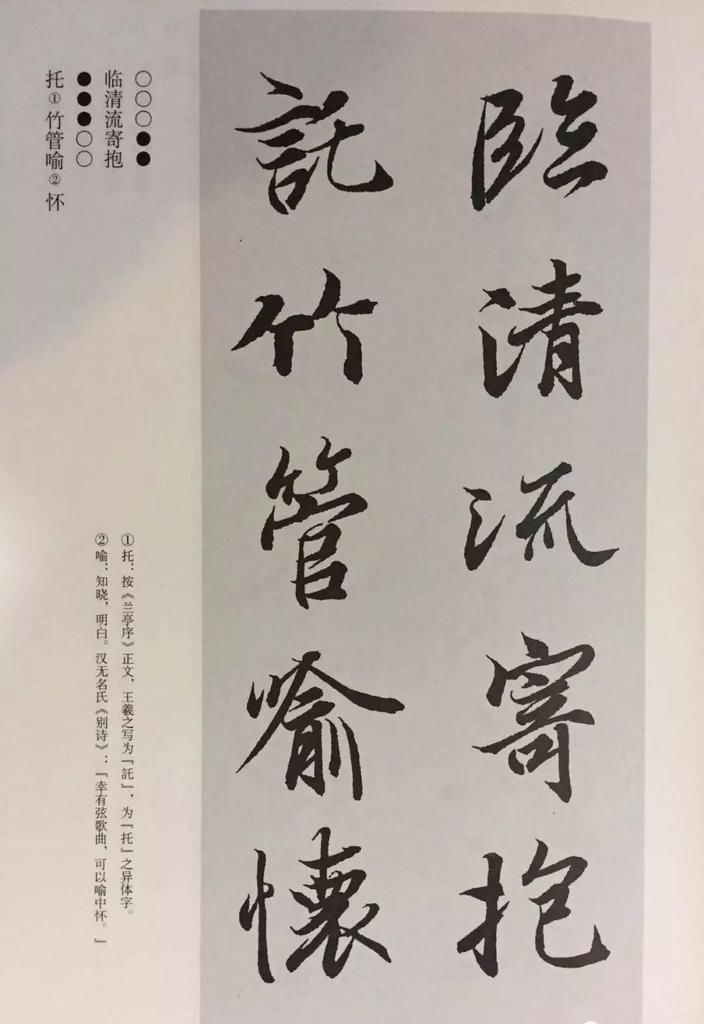 臨清流寄抱
託竹管喻懷
○○○●●
临清流寄抱
●●●○○
托①竹管喻②怀
①托：按《兰亭序》正文，王羲之写为「託」，为「托」之异体字。
②喻：知晓，明白。汉无名氏《别诗》：「幸有弦歌曲，可以喻中怀。」